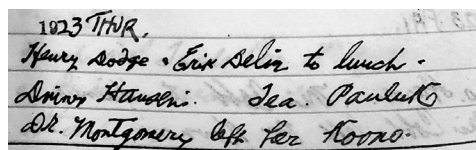 1923 THUR.
Henry Dodge. Erik Delin to lunch.
Dinner Hansens. Tea. Pauluk
Dr. Montgomery left for Koono.